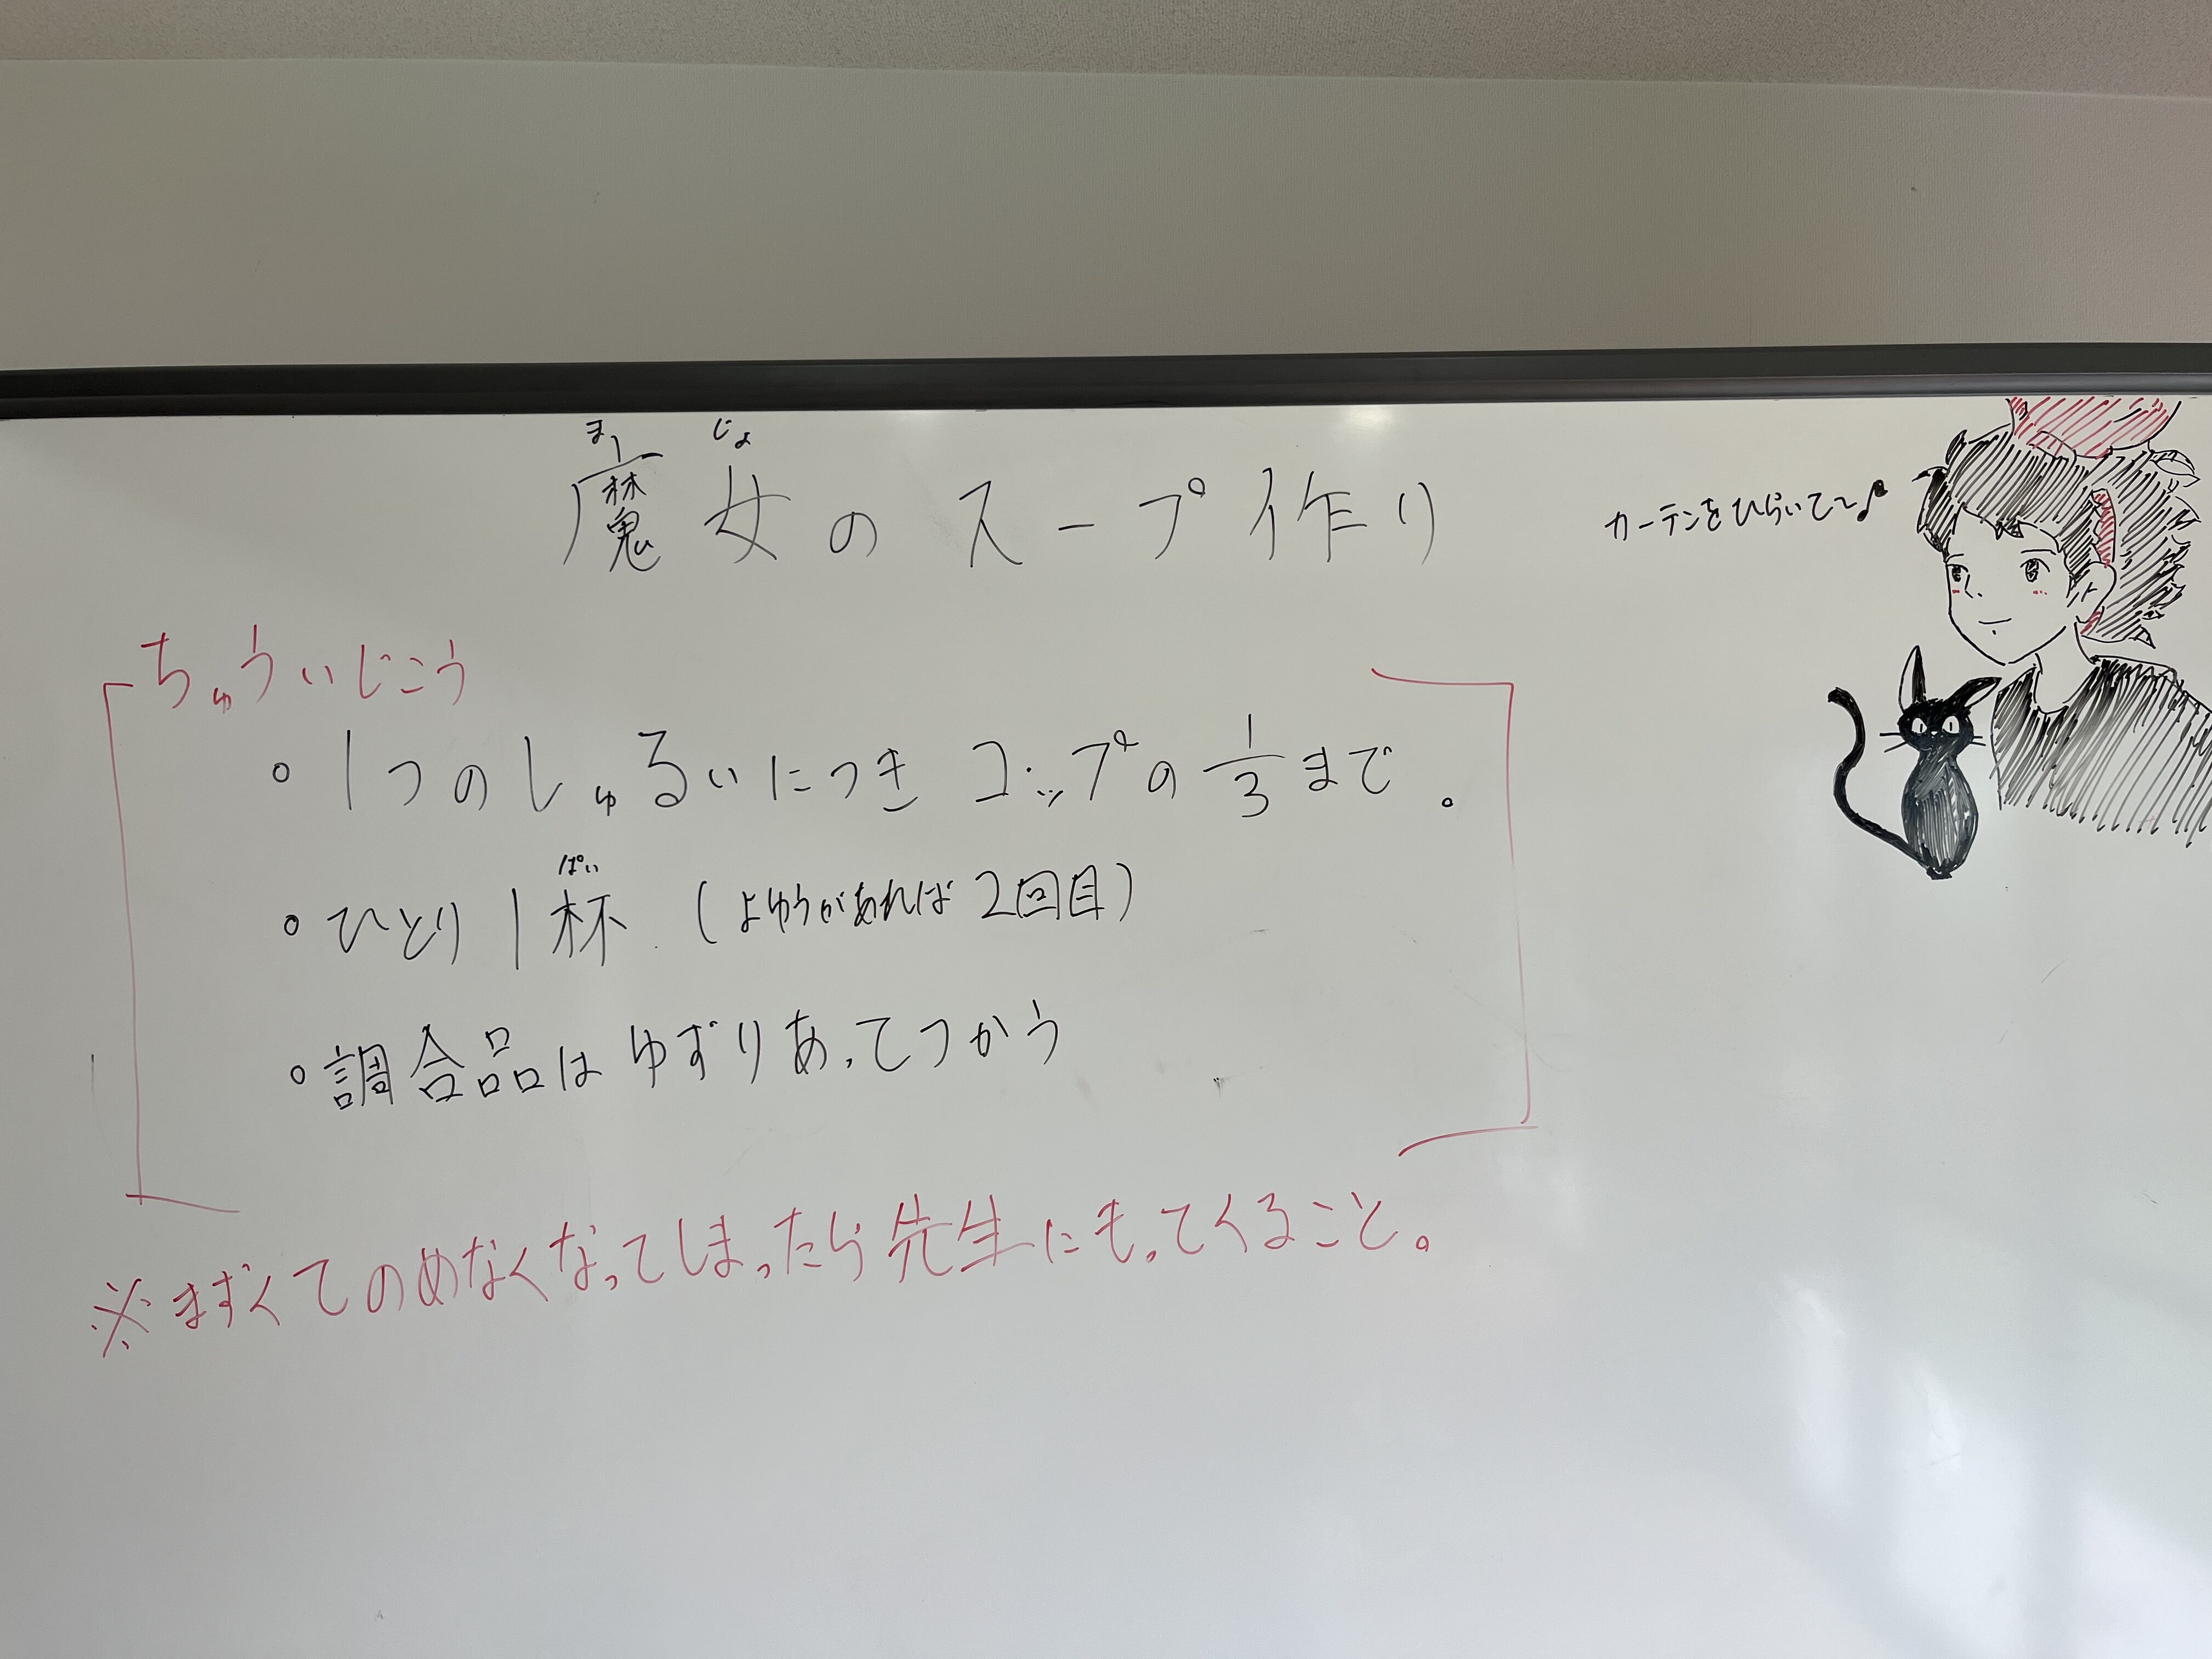 魔女のスープ作り
まじょ
カーテンをひらいて〜♪
ちゅういじこう
・1つのしゅるいにつきコップの1/3まで。
・ひとり1杯（よゆうがあれば2回目）
ぱい
・調合品はゆずりあってつかう
※まずくてのめなくなってしまったら先生にもってくること。